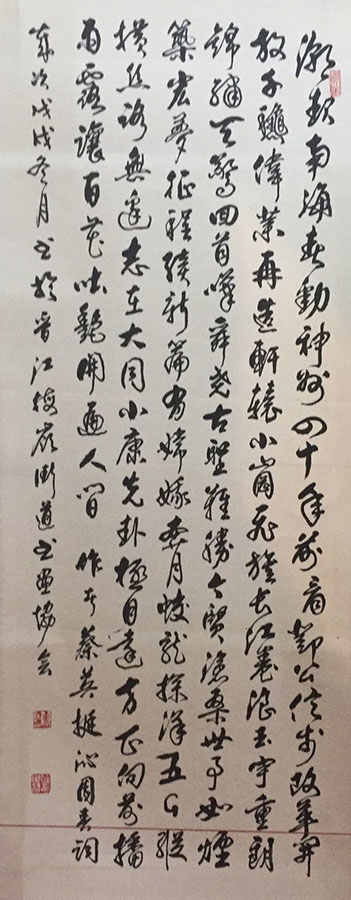 潮起南海春動神州四十年前看鄧公信步改革開
放千偉業再造軒轅小崗飛旌長江卷浪玉宇重
錦繡天驚回首嘆舜堯古聖難勝今賢滄桑世事如煙
築宏夢征程續新篇有嫦娥奔月蛟龍探洋五G縱
橫絲路無邊志在大同小康先卦極目遠方正向前播
雨露讓百花吐艷開遍人間 蔡英挺沁園春詞
歲次戊戌冬月書於晉江梅嶺街道書畫協會